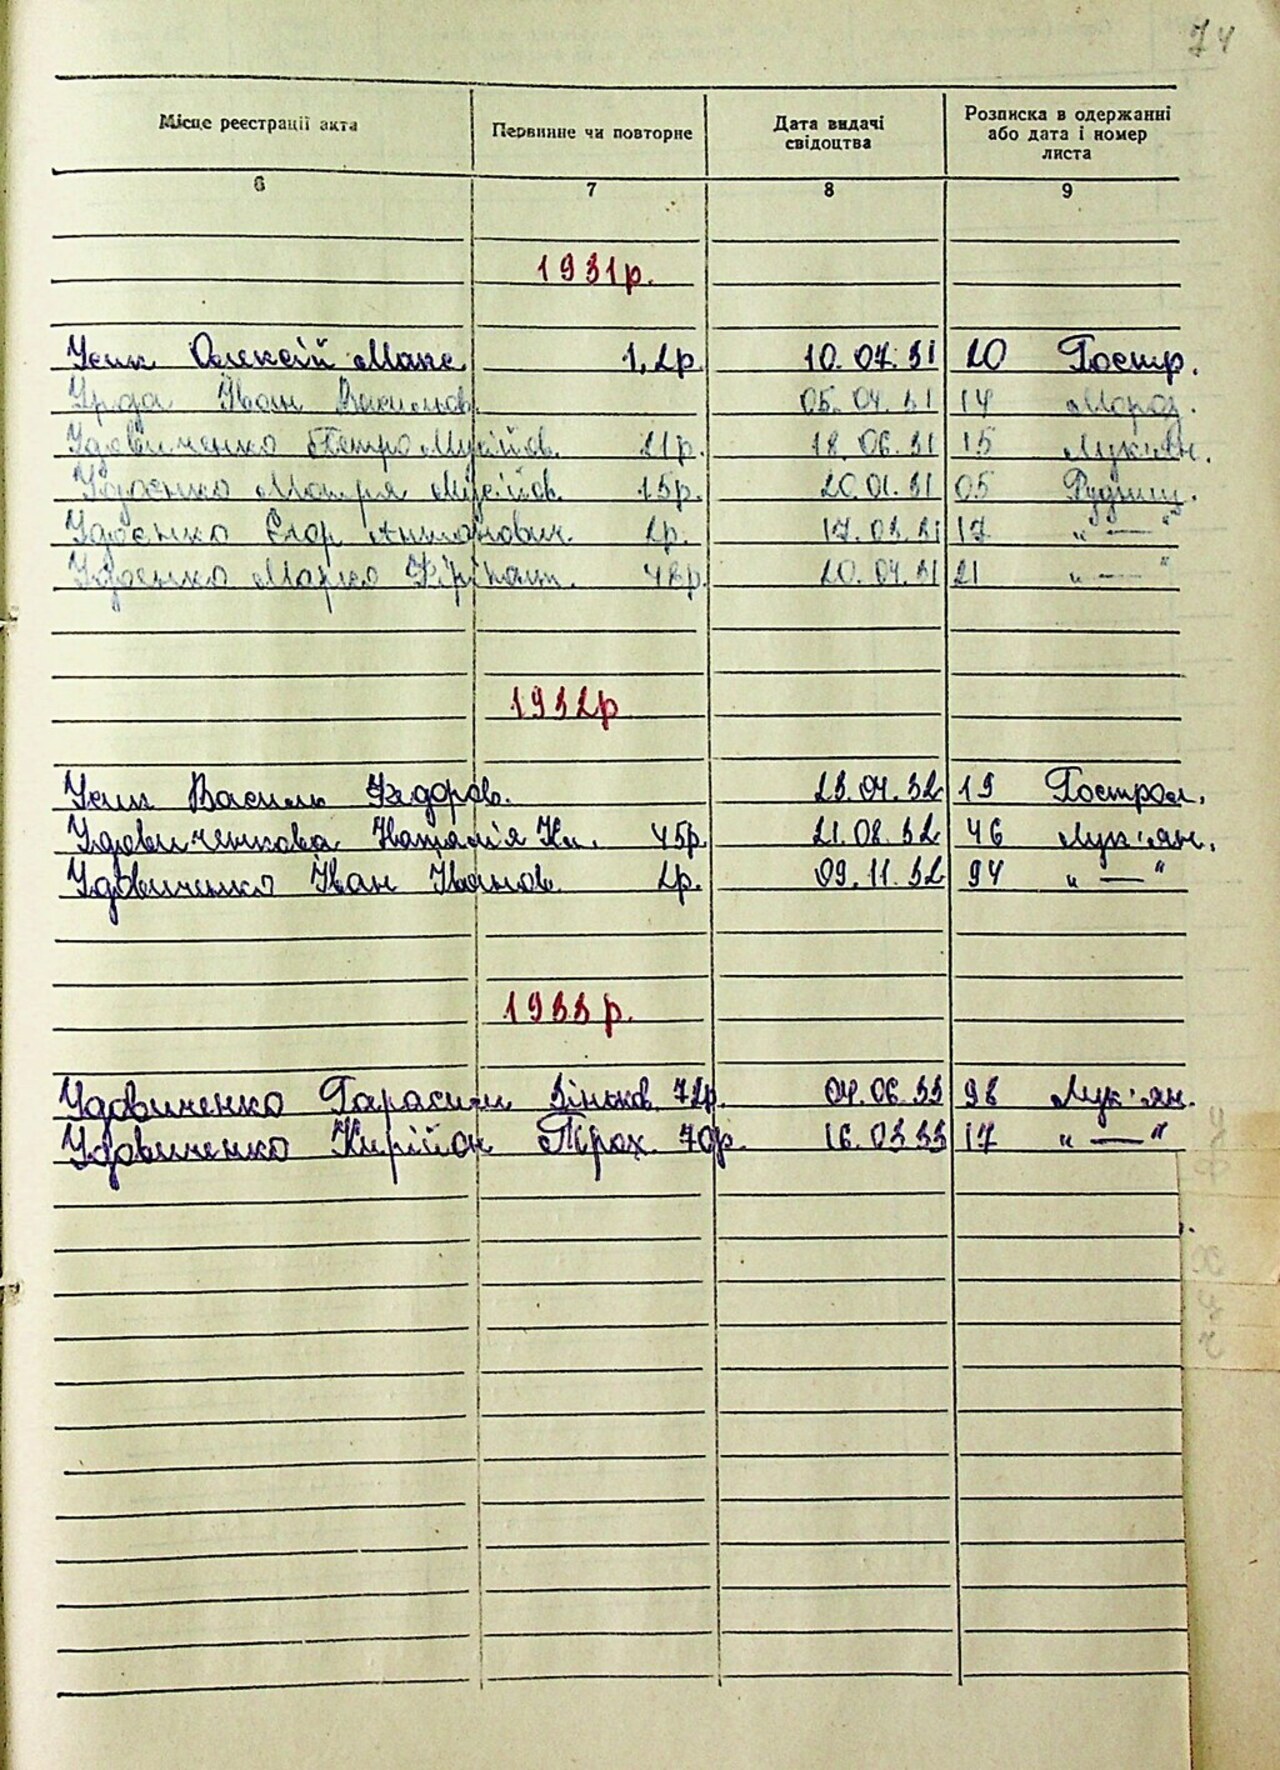 74
Місце реєстрації акта Первинне чи повторне Дата видачі свідоцтва Розписка в одержанні або дата і номер листа
6 7 8 9
1931р.
Усик Олексій Макс. 1,2р. 10.07.31 20 Гостр.
Урда Іван Васильов. 05.04.31 14 Мороз.
Удовиченко Петро Мусійов. 21р. 18.06.31 15 Лук'ян.
Удоєнко Мотря Мусійов. 15р. 20.01.31 05 Рудниц.
Удоєнко Єгор Антонович. 2р. 17.03.31 17 „ — "
Удоєнко Марко 48р. 20.04.31 21 „ — "
1932р
Усик Василь Федоров. 23.04.32 19 Гострол.
Удовиченкова Наталія Ки. 45р. 21.08.32 46 Лук'ян.
Удовиченко Іван Іванов. 2р. 09.11.32 94 „ — "
1933р.
Удовиченко Гарасим Зіньков. 72р. 04.06.33 98 Лук'ян.
Удовиченко Кирійон Прох. 70р. 16.03.33 17 „ — "